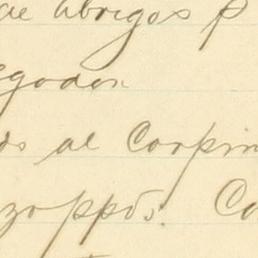 de Abrigos p
godon
ds al Carpin
zoppōs. Co